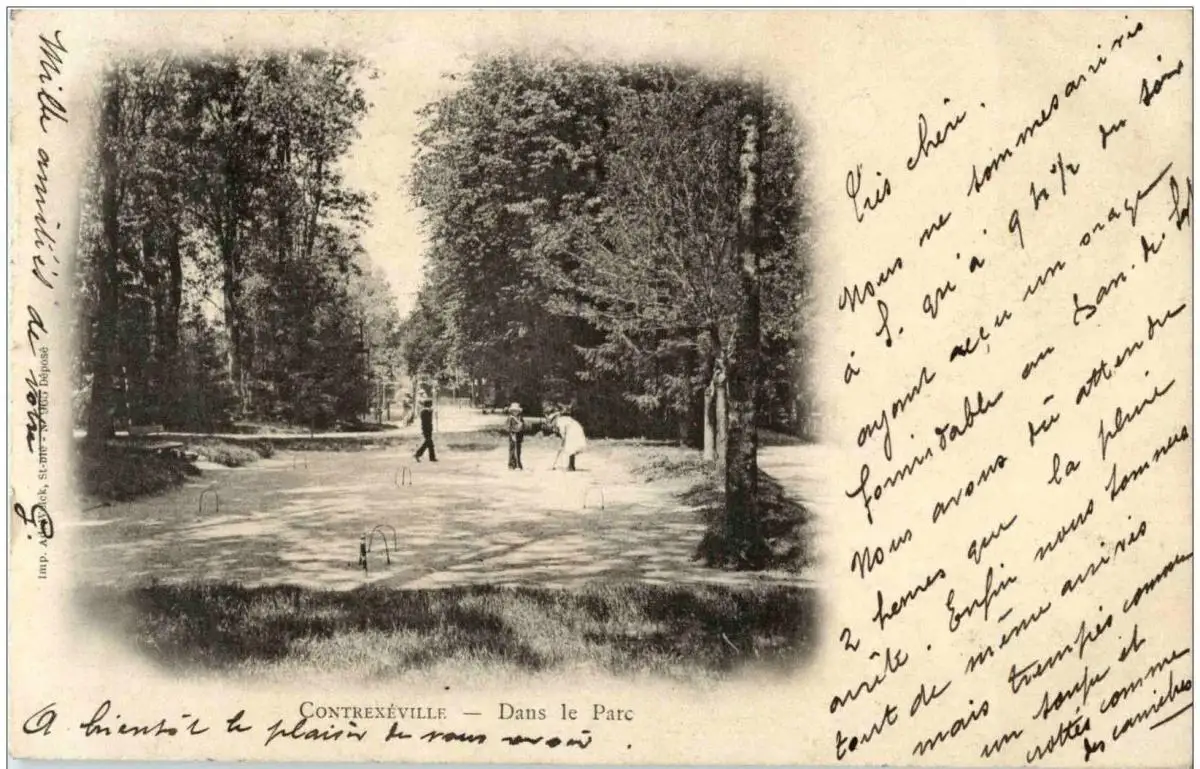 Très chéri.
Nous ne sommes arrivis
à S. qu'à 9 h 1/2 du soir
ayant reçu un orage
formidable au San. de
Nous avons dû attendre
2 heures que la pluie
arrête. Enfin nous sommes
tout de même arrivis
mais trempés comme
un soupe et
crottés comme
des caniches
CONTREXÉVILLE — Dans le Parc
A bientôt le plaisir de vous avoir.
Mille amitiés de votre
G.
Imp. Ad. Weick, St-Dié Déposé